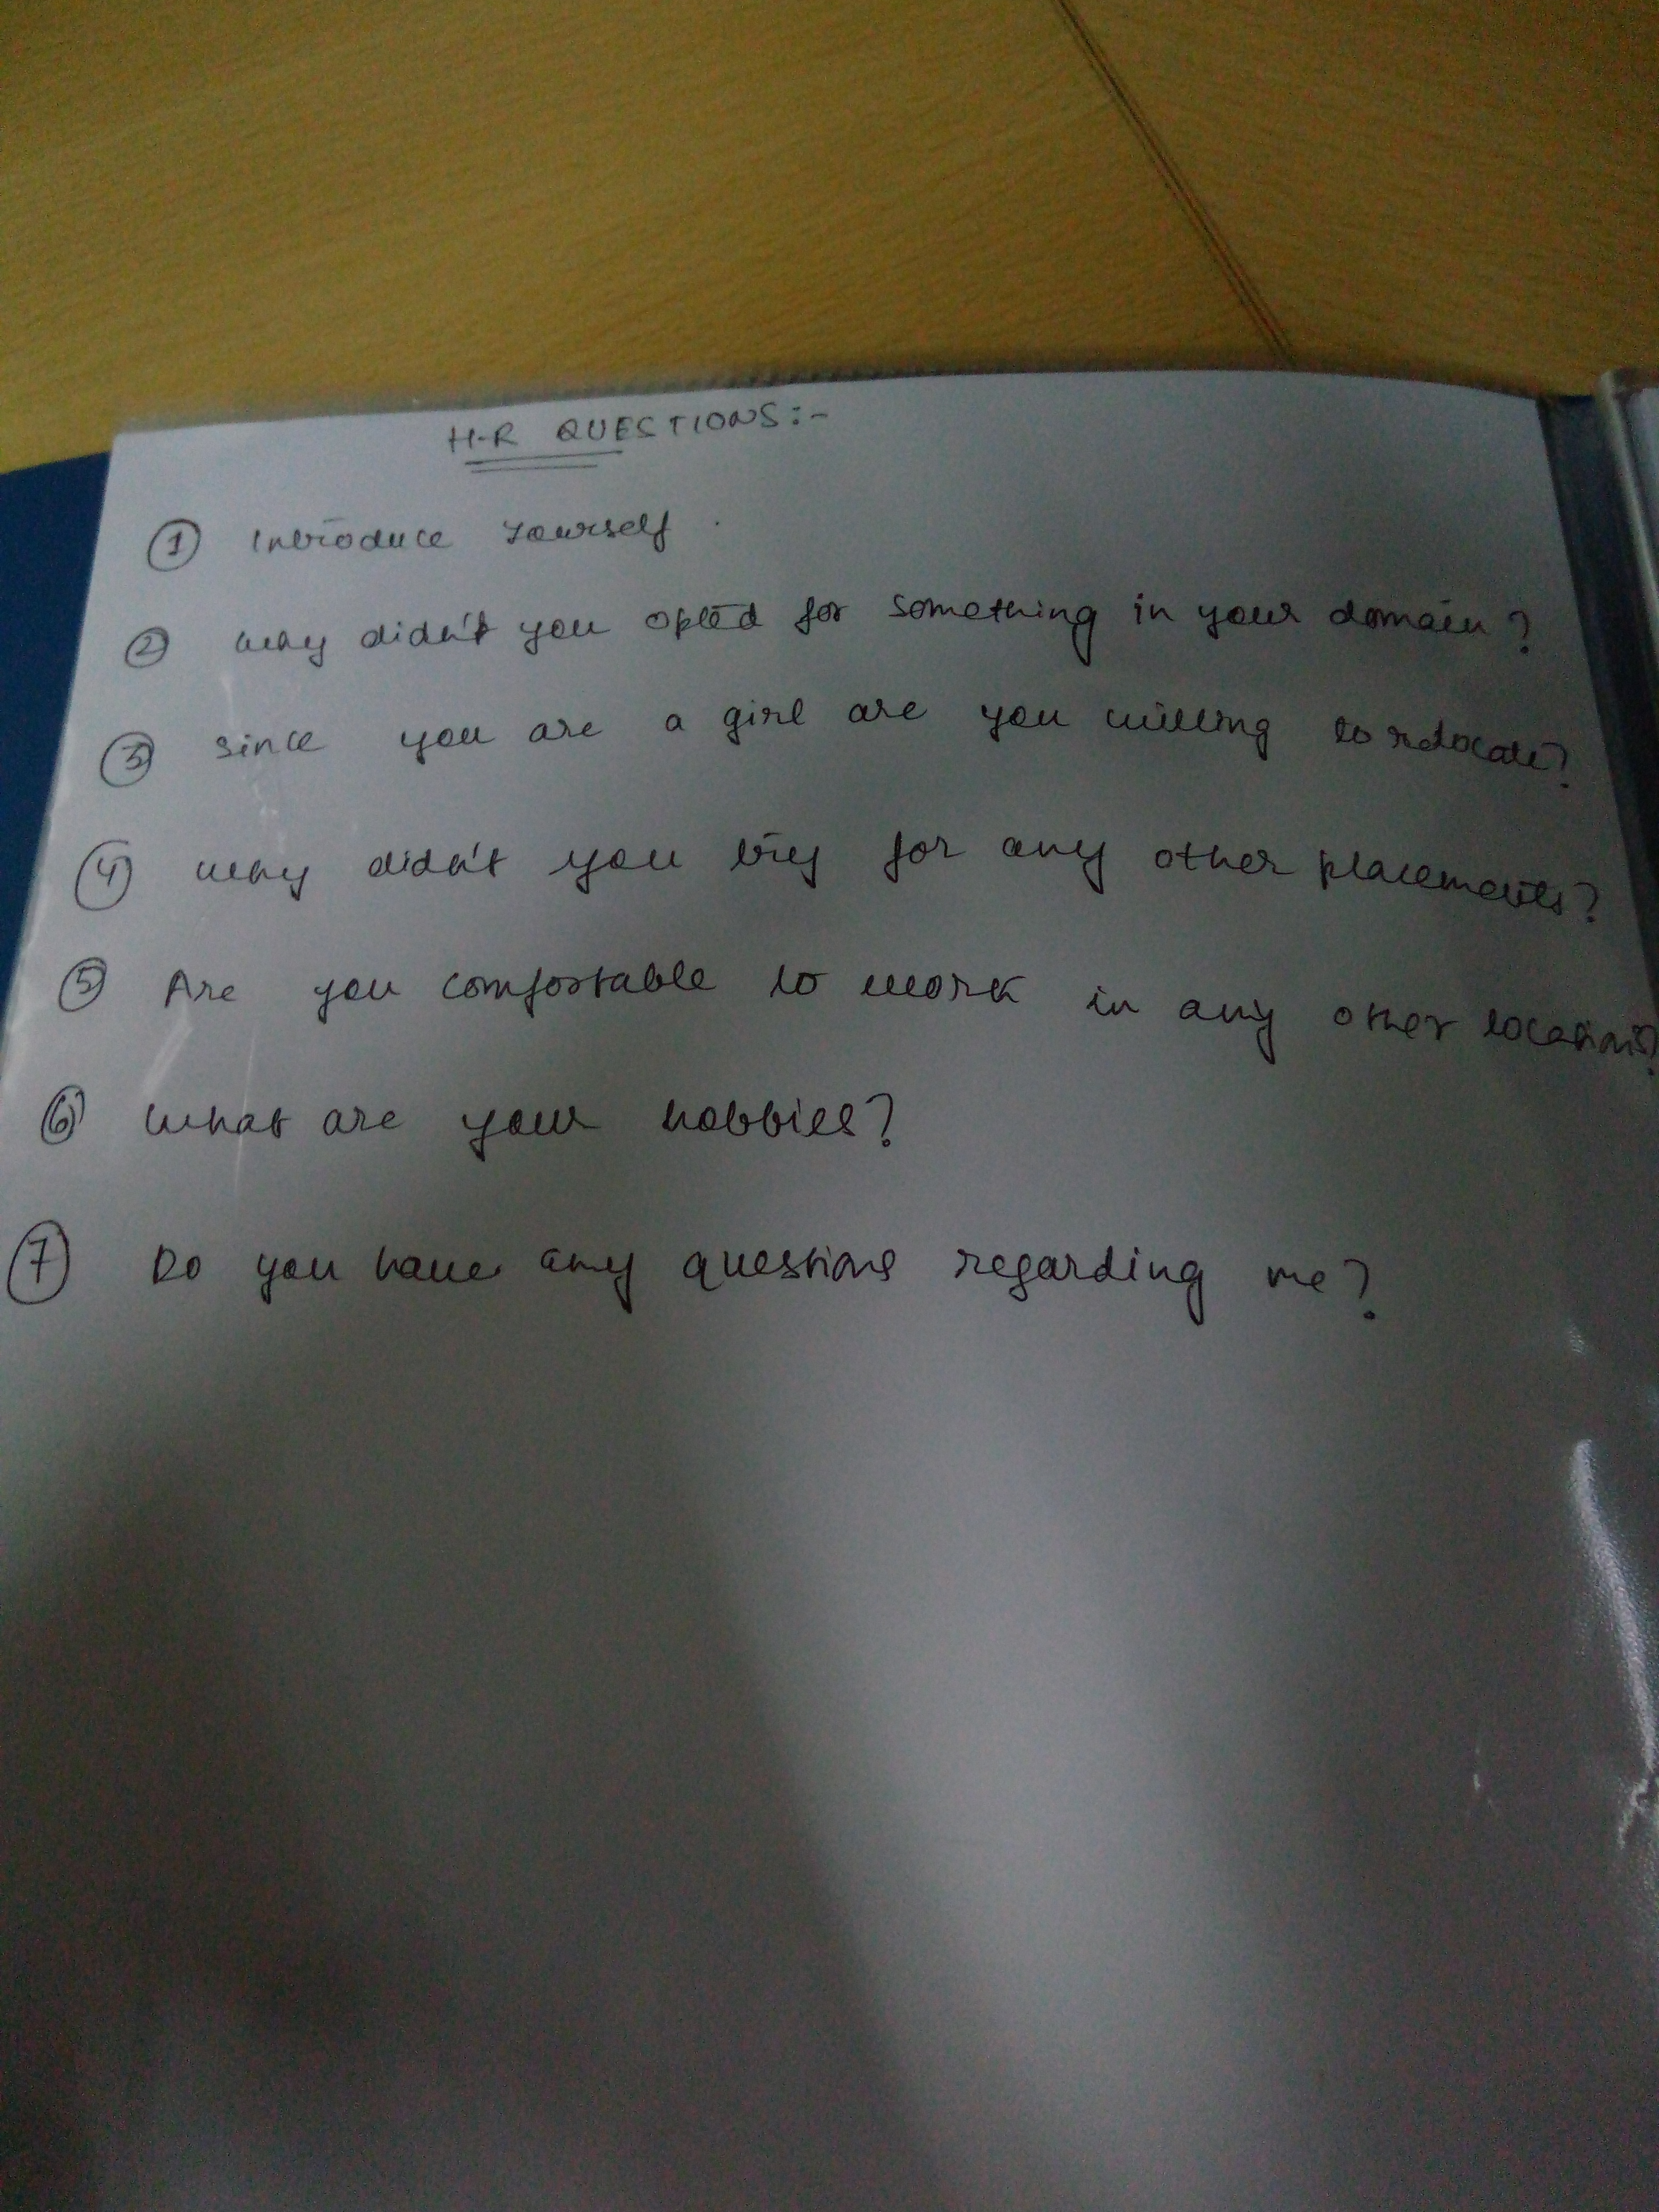 H-R QUESTIONS:-
① Introduce Yourself.
② why didn't you opted for something in your domain?
③ since you are a girl are you willing to relocate?
④ why didn't you try for any other placements?
⑤ Are you comfortable to work in any other locations?
⑥ What are your hobbies?
⑦ Do you have any questions regarding me?